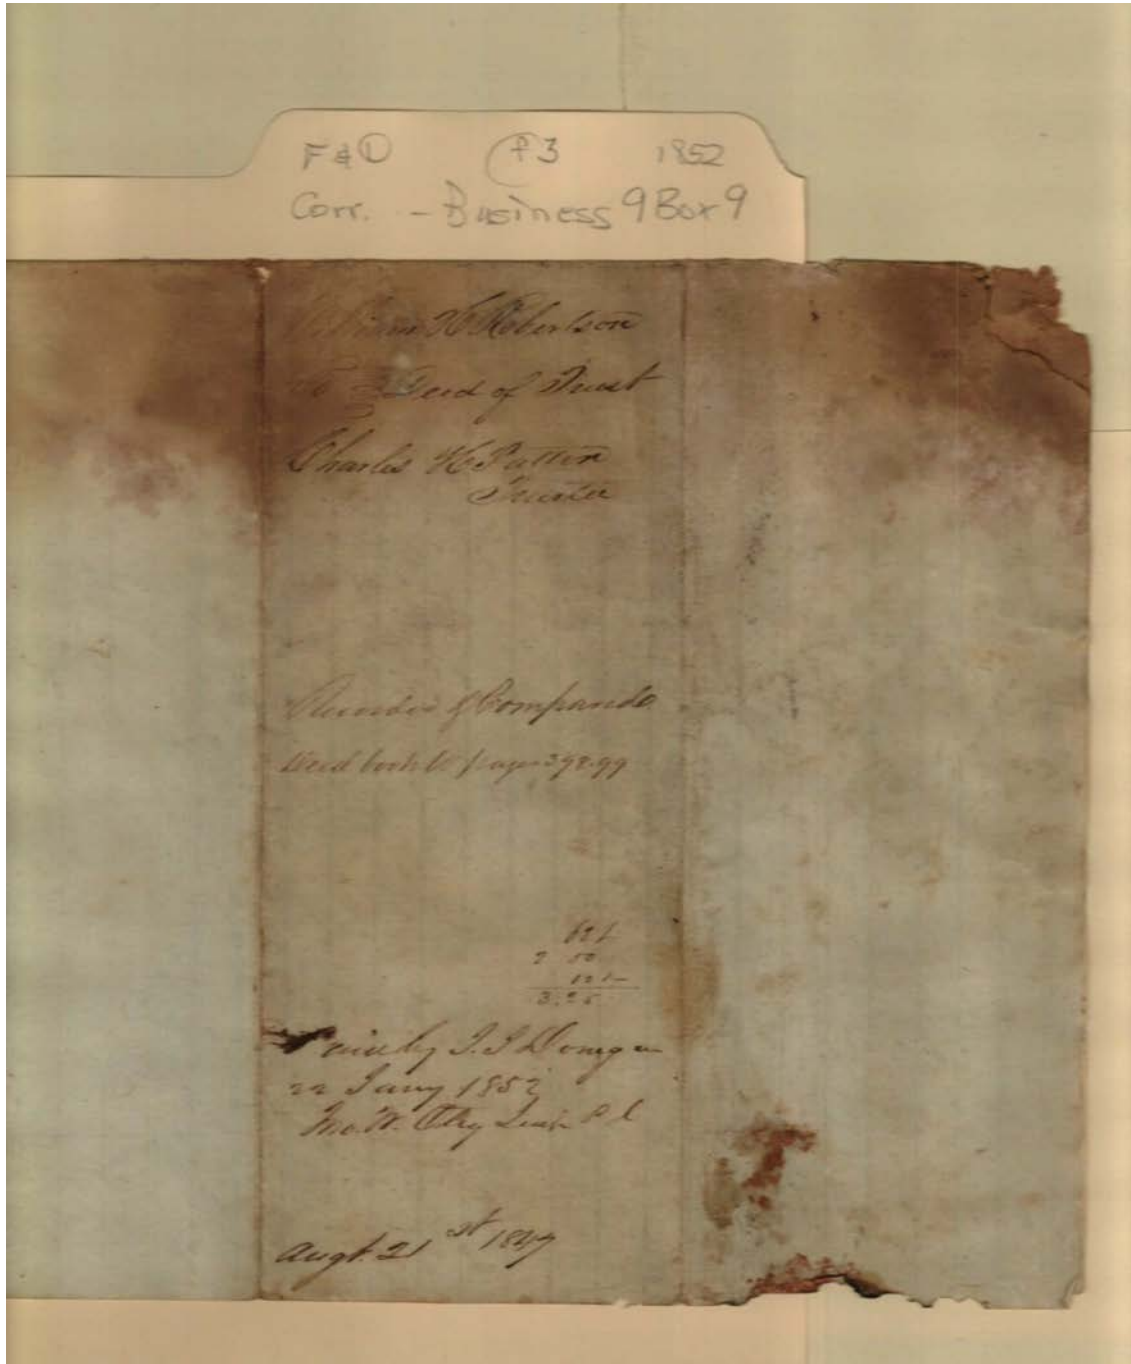 F & D P3 1852
Corr. - Business 9 Box 9
William H Robertson
To Deed of Trust
Charles H Patton
Trustee
Recorded & Compared
Deed book W pages 398.99
62½
2 50
12½
3.25
by J. J Donegan
22 Jany 1852
Jno. W. Otey
Augt. 21st 1847